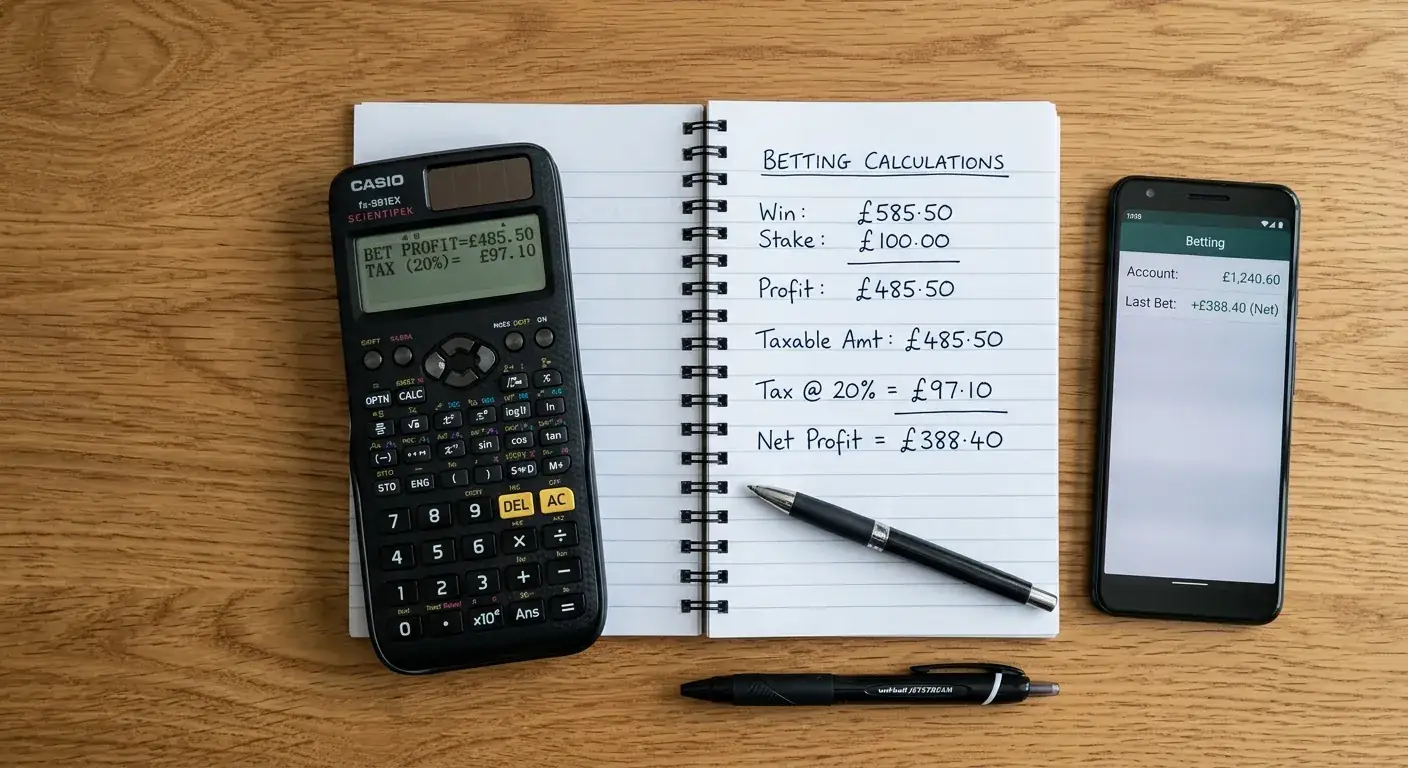 CASIO
fx-991EX
BET PROFIT=£485.50
TAX (20%)= £97.10
ON
OPTN CALC
log ln
(-) sin cos tan
STO ENG ( ) S⇔D M+
7 8 9 DEL AC
4 5 6 × ÷
1 2 3 + −
0 . x10 Ans =
BETTING CALCULATIONS
Win: £585.50
Stake: £100.00
Profit: £485.50
Taxable Amt: £485.50
Tax @ 20% = £97.10
Net Profit = £388.40
Betting
Account: £1,240.60
Last Bet: +£388.40 (Net)
JETSTREAM